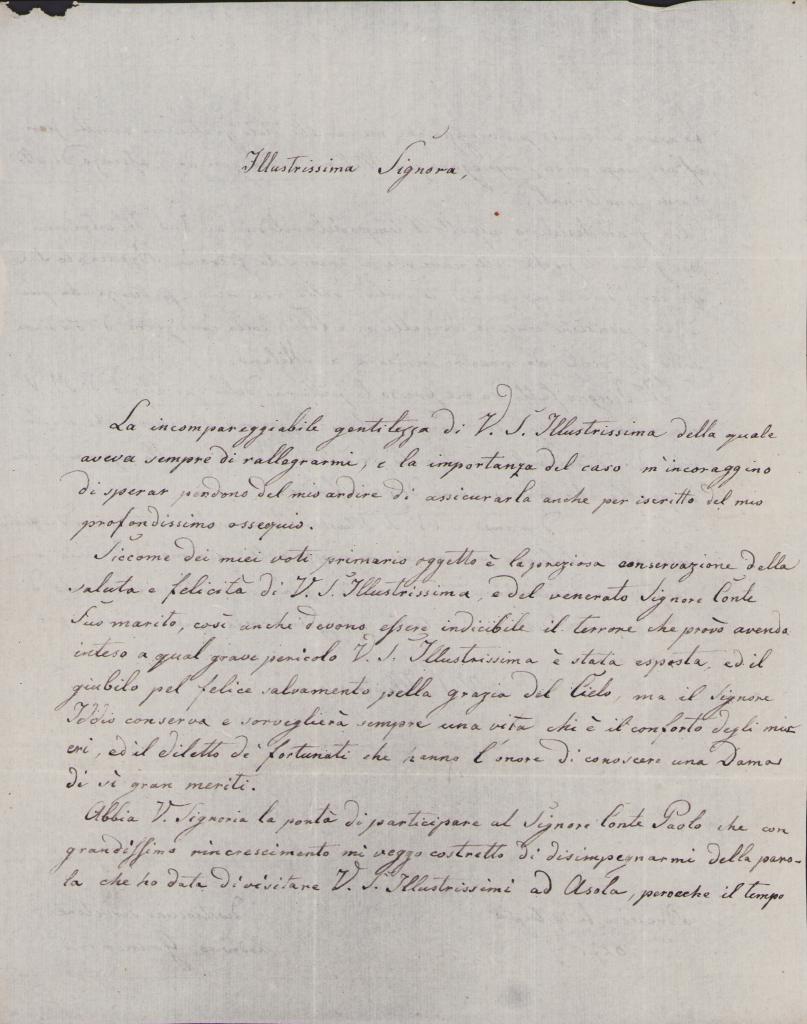 Illustrissima Signora,
La incompareggiabile gentilezza di V. S. Illustrissima della quale
aveva sempre di rallegrarmi, e la importanza del caso m'incoraggino
di sperar perdono del mio ardire di assicurarla anche per iscritto del mio
profondissimo ossequio.
Siccome dei miei voti primario oggetto è la preziosa conservazione della
saluta e felicità di V. S. Illustrissima, e del venerato Signore Conte
Suo marito, così anche devono essere indicibile il terrore che provò avendo
inteso a qual grave pericolo V. S. Illustrissima è stata esposta, ed il
giubilo pel felice salvamento pella grazia del Cielo, ma il Signore
Iddio conserva e sorveglierà sempre una vita chi è il conforto degli mis-
eri, ed il diletto de' fortunati che hanno l'onore di conoscere una Dama
di sì gran meriti.
Abbia V. Signoria la pontà di participare al Signore Conte Paolo che con
grandissimo rincrescimento mi veggo costretto di disimpegnarmi della paro-
la che ho data di visitare V. S. Illustrissimi ad Asola, perocche il tempo